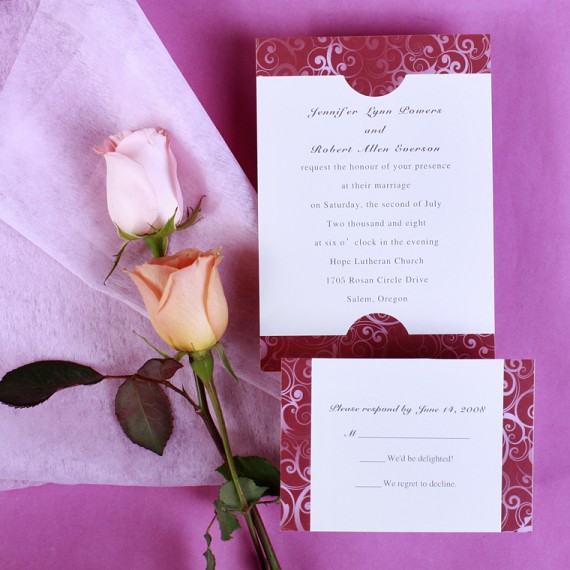 Jennifer Lynn Powers
and
Robert Allen Everson
request the honour of your presence
at their marriage
on Saturday, the second of July
Two thousand and eight
at six o’ clock in the evening
Hope Lutheran Church
1705 Rosan Circle Drive
Salem, Oregon
Please respond by June 14, 2008
M
We'd be delighted!
We regret to decline.